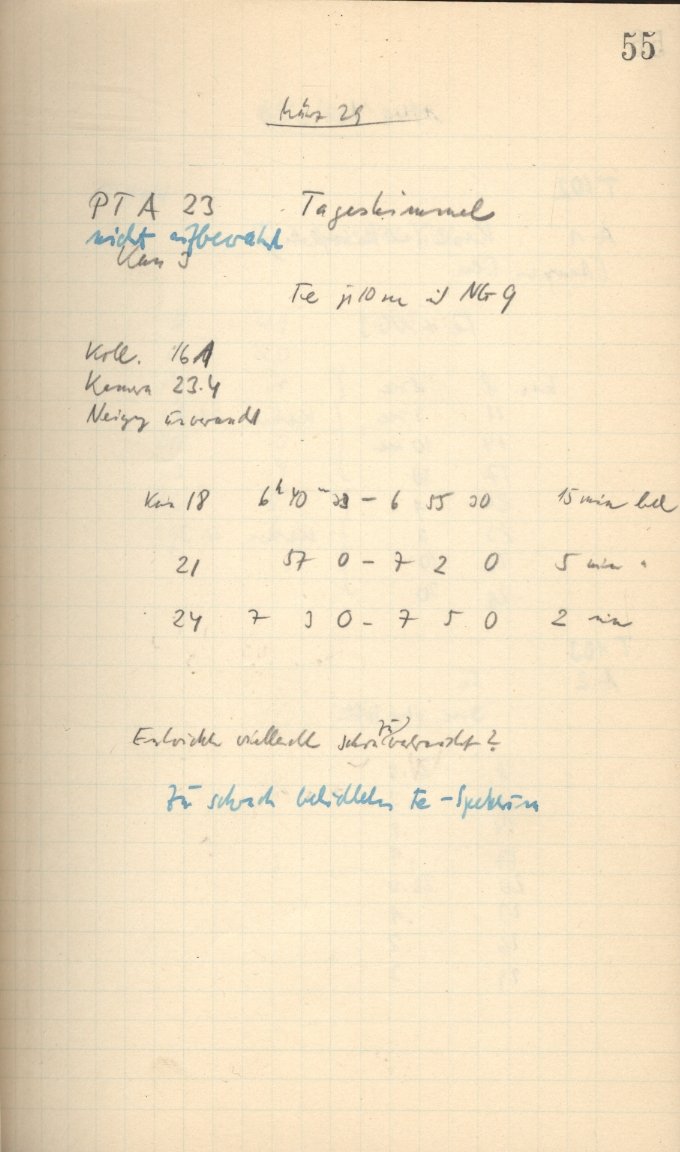 55
März 29
PTA 23 Tageshimmel
nicht aufbewahrt
Kas 3
Fe je 10 m NG 9
Koll. 16
Kamera 23.4
Neigung unverändert
Kas 18 6h 40m 30 – 6 55 30 15 min bel
21 57 0 – 7 2 0 5 min "
24 7 3 0 – 7 5 0 2 min
Entwickler vielleicht schon zu verbraucht?
Zu schwach belichtetes Fe-Spektrum